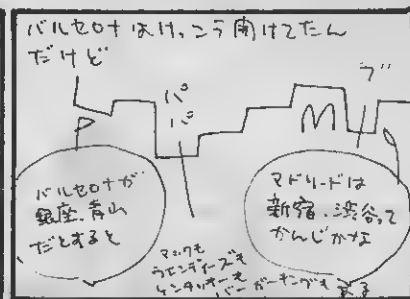 バルセロナはけっこう開けてたん
だけど
バルセロナが
銀座、青山
だとすると
M
マドリードは
新宿、渋谷って
かんじかな
マックも
ウエンディーズも
ケンタッキーも
バーガーキングも